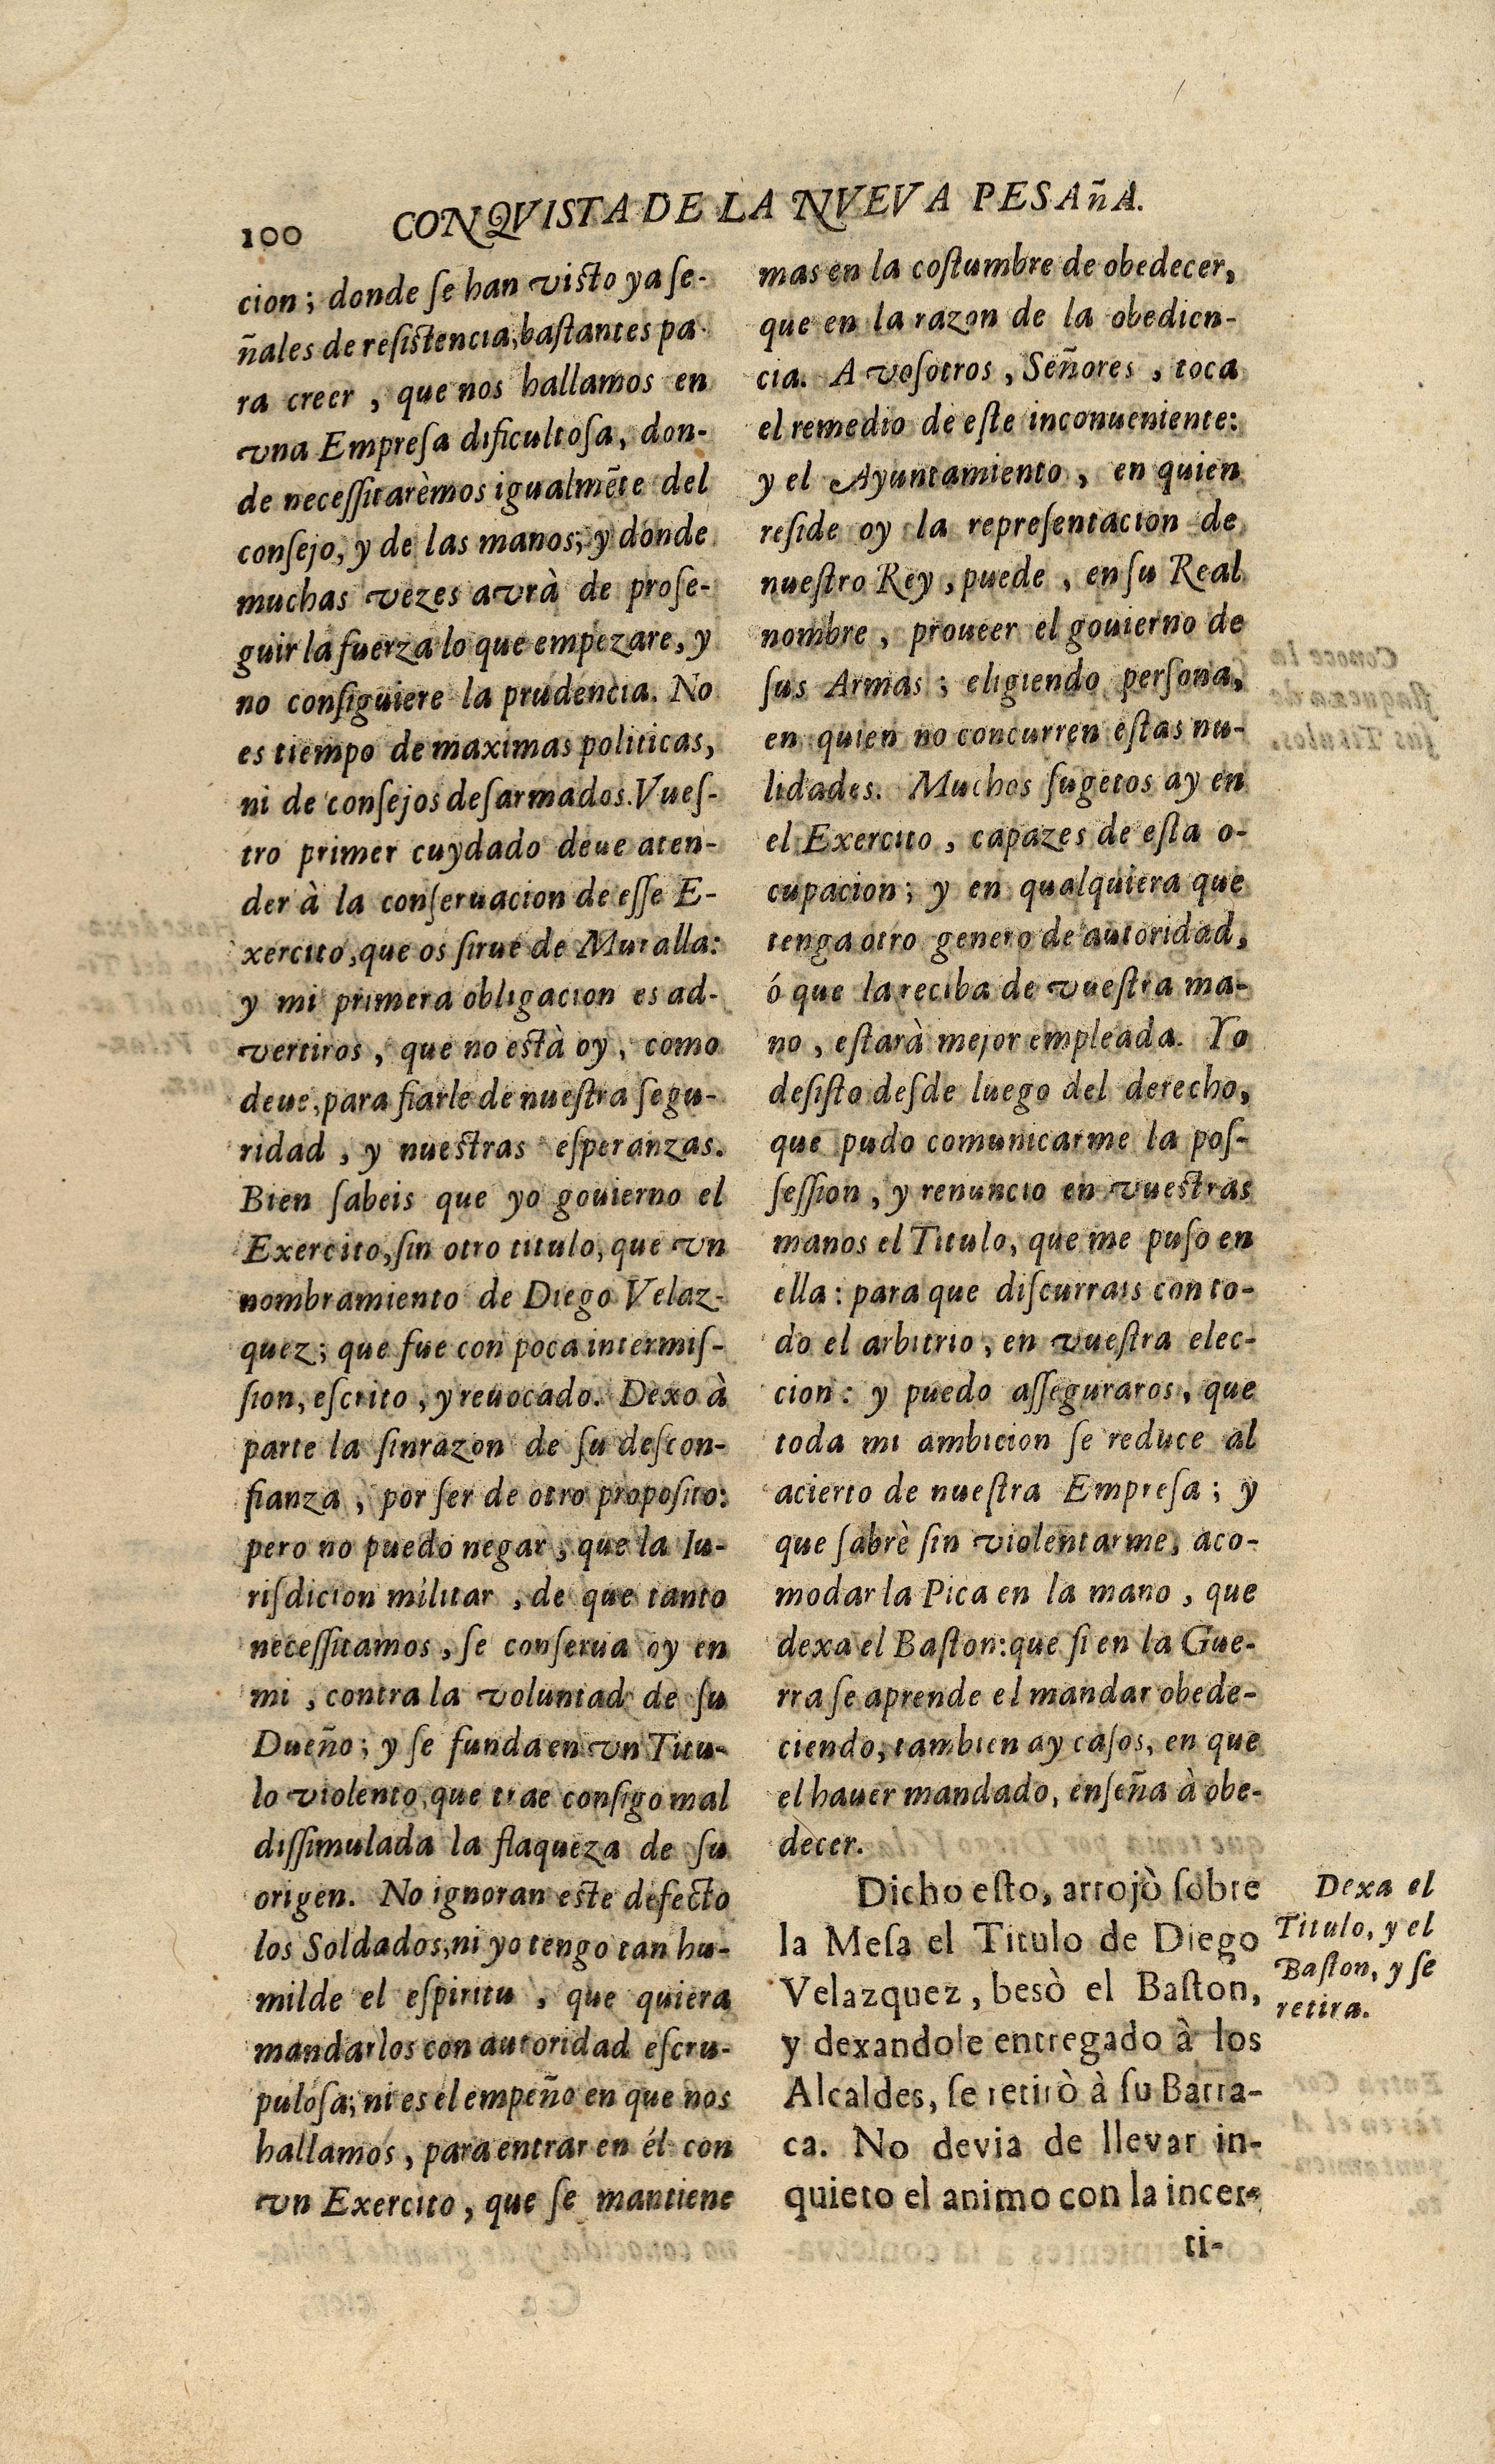 100 CONQVISTA DE LA NVEVA PESAñA.
cion; donde ſe han viſto ya ſe-
ñales de reſiſtencia, baſtantes pa-
ra creer, que nos hallamos en
vna Empreſa dificultoſa, don-
de neceſſitarèmos igualmẽte del
conſejo, y de las manos; y donde
muchas vezes avrà de proſe-
guir la fuerza lo que empezare, y
no conſiguiere la prudencia. No
es tiempo de maximas politicas,
ni de conſejos deſarmados. Vueſ-
tro primer cuydado deue aten-
der à la conſeruacion de eſſe E-
xercito, que os ſirue de Muralla:
y mi primera obligacion es ad-
vertiros, que no eſtà oy, como
deue, para fiarle de nueſtra ſegu-
ridad, y nueſtras eſperanzas.
Bien ſabeis que yo gouierno el
Exercito, ſin otro titulo, que vn
nombramiento de Diego Velaz-
quez; que fue con poca intermiſ-
ſion, eſcrito, y reuocado. Dexo à
parte la ſinrazon de ſu deſcon-
fianza, por ſer de otro propoſito:
pero no puedo negar, que la Iu-
riſdicion militar, de que tanto
neceſſitamos, ſe conſerua oy en
mi, contra la voluntad de ſu
Dueño; y ſe funda en vn Titu-
lo violento, que trae conſigo mal
diſſimulada la flaqueza de ſu
origen. No ignoran eſte defecto
los Soldados, ni yo tengo tan hu-
milde el eſpiritu, que quiera
mandarlos con autoridad eſcru-
puloſa; ni es el empeño en que nos
hallamos, para entrar en él con
vn Exercito, que ſe mantiene
mas en la coſtumbre de obedecer,
que en la razon de la obedien-
cia. A voſotros, Señores, toca
el remedio de eſte inconueniente:
y el Ayuntamiento, en quien
reſide oy la repreſentacion de
nueſtro Rey, puede, en ſu Real
nombre, proueer el gouierno de
ſus Armas; eligiendo perſona,
en quien no concurren eſtas nu-
lidades. Muchos ſugetos ay en
el Exercito, capazes de eſta o-
cupacion; y en qualquiera que
tenga otro genero de autoridad,
ó que la reciba de vueſtra ma-
no, eſtarà mejor empleada. Yo
deſiſto deſde luego del derecho,
que pudo comunicarme la poſ-
ſeſſion, y renuncio en vueſtras
manos el Titulo, que me puſo en
ella: para que diſcurrais con to-
do el arbitrio, en vueſtra elec-
cion: y puedo aſſeguraros, que
toda mi ambicion ſe reduce al
acierto de nueſtra Empreſa; y
que ſabrè ſin violentarme, aco-
modar la Pica en la mano, que
dexa el Baſton: que ſi en la Gue-
rra ſe aprende el mandar obede-
ciendo, tambien ay caſos, en que
el hauer mandado, enſeña à obe-
decer.
Dicho eſto, arrojò ſobre
la Meſa el Titulo de Diego
Velazquez, besò el Baſton,
y dexandole entregado à los
Alcaldes, ſe retirò à ſu Barra-
ca. No devia de llevar in-
quieto el animo con la incer-
ti-
Dexa el
Titulo, y el
Baſton, y ſe
retira.